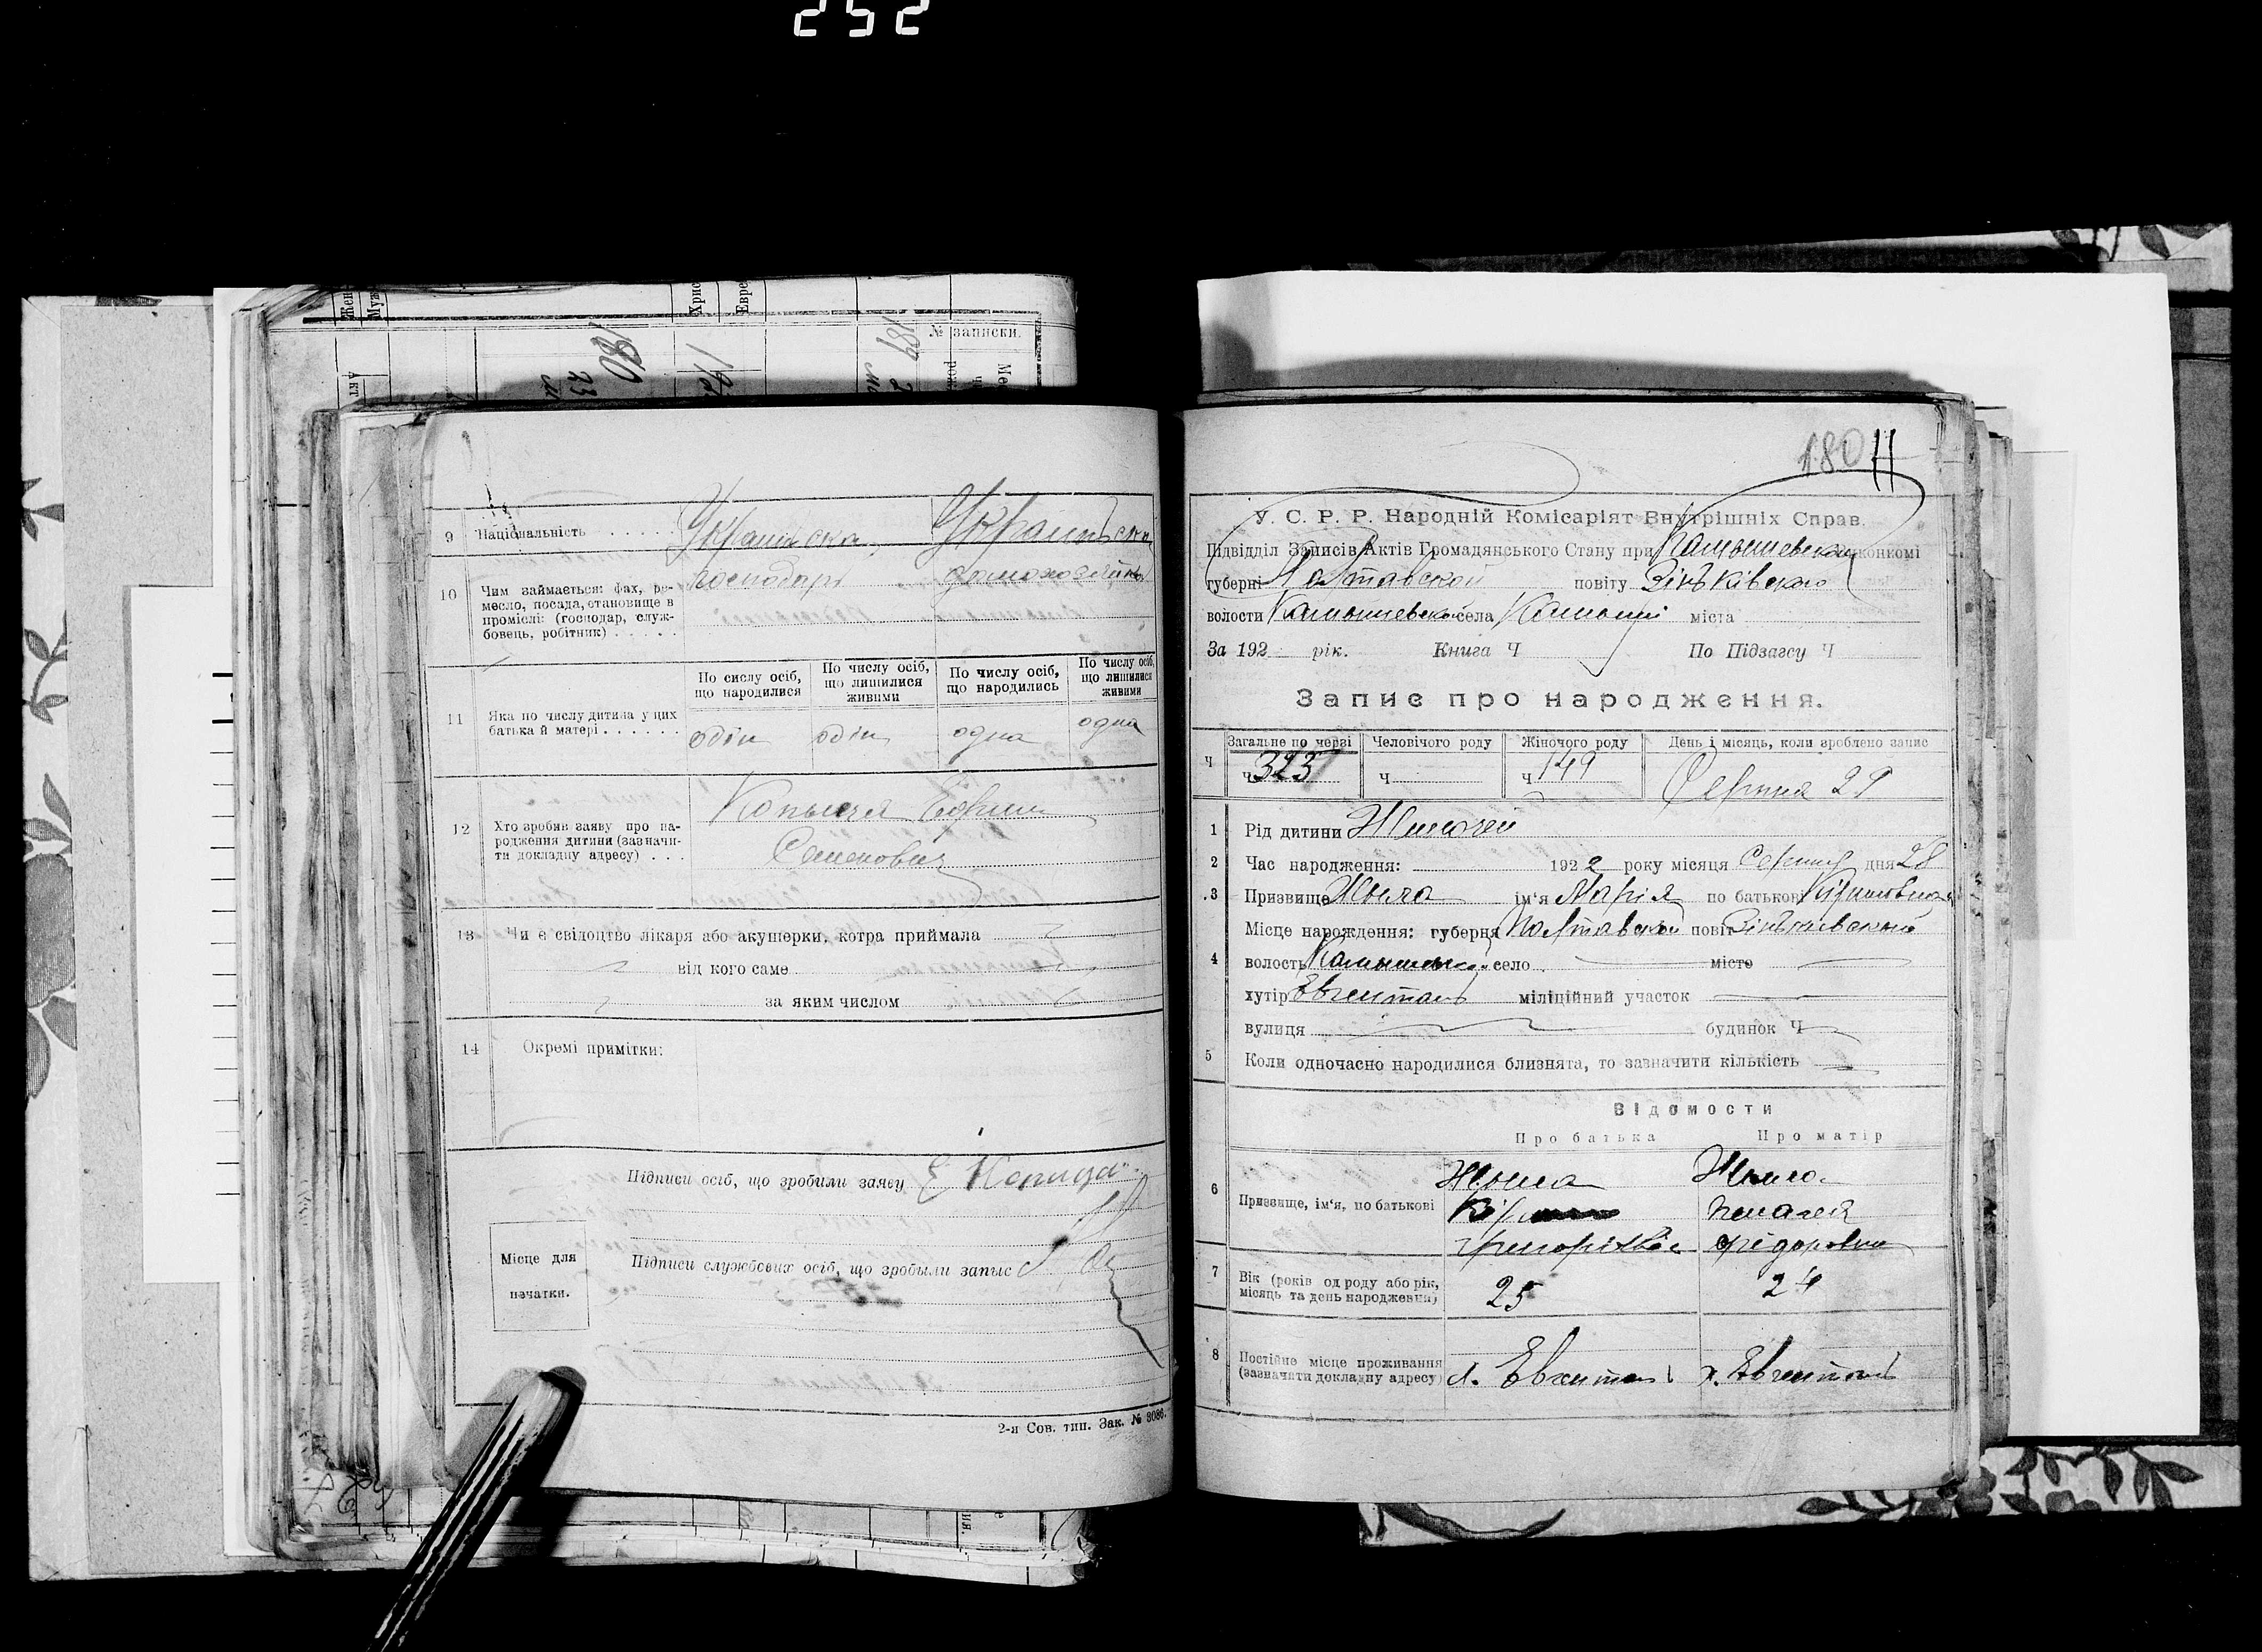 252
Жен
Муж
Хрис
Евре
№ записки.
180
189
Акт
9 Національність . . . . Украинска Украинська
10 Чим займається: фах, ре-
месло, посада, становище в
промислі: (господар, служ-
бовець, робітник) . . . . .
господарь домохозяйка
По сислу осіб,
що народилися
По числу осіб,
що лишилися
живими
По числу осіб,
що народились
По числу осіб,
що лишилися
живими
11 Яка по числу дитина у цих
батька й матері . . . . . .
одін одін одна одна
12 Хто зробив заяву про на-
родження дитини (зазначи-
ти докладну адресу) . . .
Семенович
13 Чи є свідоцтво лікаря або акушерки, котра приймала
від кого саме
за яким числом
14 Окремі примітки:
Підписи осіб, що зробили заяву Е
Місце для
печатки.
Підписи службових осіб, що зробыли запыс
2-я Сов. тип. Зак. № 3086.
180
У. С. Р. Р. Народній Комісаріят Внутрішніх Справ.
Підвідділ Записів Актів Громадянського Стану при Камышевском конкомі
губерні Полтавской повіту Зіньківского
волости Камышевской села Камыши міста
За 192 рік. Книга Ч По Підзагсу Ч
Запис про народження.
Загальне по черзі Человічого роду Жіночого роду День і місяць, коли зроблено запис
Ч ч 323 ч ч 149 Серпня 29
1 Рід дитини Жиночий
2 Час народження: 1922 року місяця Серпня дня 28
3 Призвище ім'я Марія по батькові
Місце нарождення: губерня Полтавской повіт Зіньківський
4 волость село місто
хутір міліційний участок
вулиця будинок Ч
5 Коли одночасно народилися близнята, то зазначити кількість
Відомости
Про батька Про матір
6 Призвище, ім'я, по батькові
Григорієвіч Федоровна
7 Вік (років од роду або рік,
місяць та день народження)
25 24
8 Постійне місце проживання
(зазначити докладну адресу)
х.